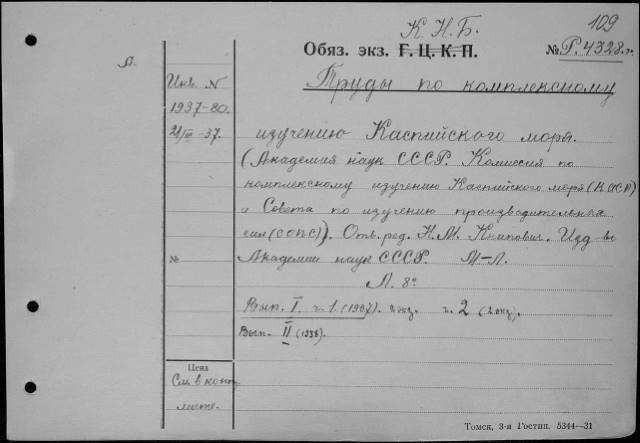 К. Н. Б.
109
Обяз. экз. Г. Ц. К. П.
№ Р.4328 г.
Л.
Инв. N
1937-80.
21/III-37.
Труды по комплексному
изучению Каспийского моря.
(Академия наук СССР. Комиссия по
комплексному изучению Каспийского моря (КОКР)
и Совета по изучению производительных
сил (СОПС)). Отв. ред. Н.М. Книпович. Изд-во
Академии наук СССР. М.-Л.
№
Л. 8°
Вып. I. ч. 1. (1937). 2 экз. ч. 2 (2 экз).
Вып. II (1938).
Цена
См. в конт.
листе.
Томск, 3-я Гостип. 5344—31